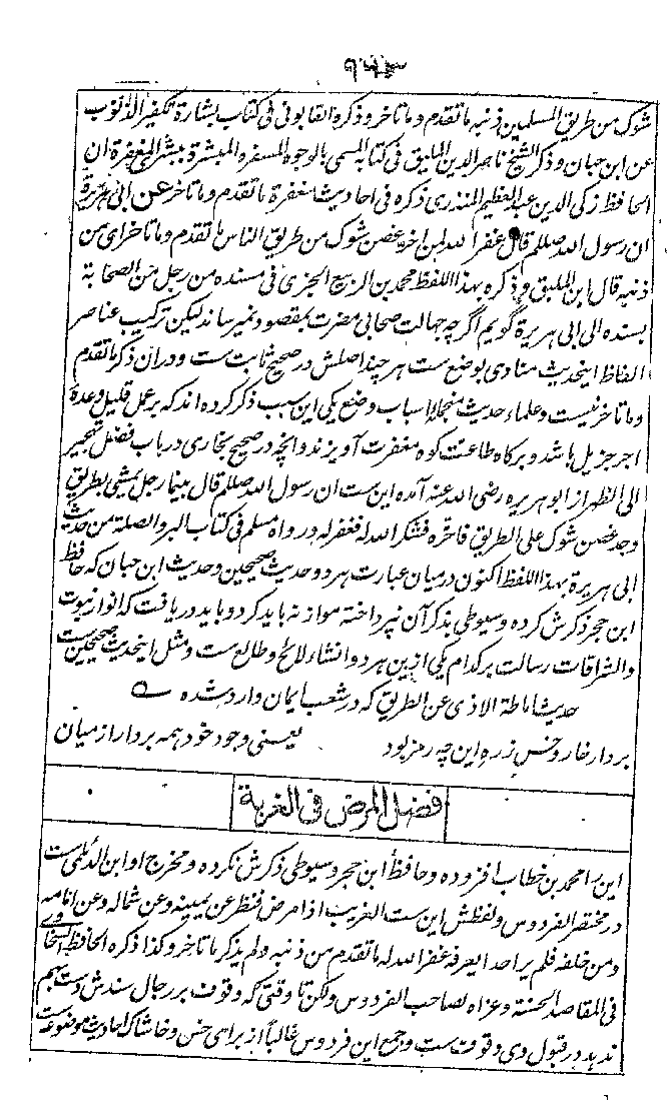 شوک من طریق المسلمین ذنبه ما تقدم وما تاخر وذکره القابونی فی کتاب بشارة تکفیر الذنوب
عن ابن حبان وذکر الشیخ ناصر الدین الملیق فی کتابه المسمی بالوجوه المسفرة المبشرة بمبشر المغفرة ان
الحافظ زکی الدین عبد العظیم المنذری ذکره فی احادیث مغفرة ما تقدم وما تاخر عن ابی هریرة
ان رسول الله صللم قال غفر الله لمن اخر غصن شوک من طریق الناس ما تقدم وما تاخر ای من
ذنبه قال ابن الملیق وذکره بهذا اللفظ محمد بن الربیع الجزی فی مسنده من رجل من الصحابة
بسنده الی ابی هریرة گویم اگرچه جهالت صحابی مضرت بمقصود نمیرساند لیکن ترکیب عناصر
الفاظ اینحدیث منادی بوضع ست هر چند اصلش در صحیح ثابت ست ودران ذکر ما تقدم
وما تاخر نیست وعلماء حدیث منجمله اسباب وضع یکی این سبب ذکر کرده اند که بر عمل قلیل وعدهٔ
اجر جزیل باشد وبر کاه طاعت کوه مغفرت آویزند وانچه در صحیح بخاری در باب فضل تهجیر
الی الظهر از ابو هریره رضی الله عنه آمده این ست ان رسول الله صللم قال بینما رجل یمشی بطریق
وجد غصن شوک علی الطریق فاخره فشکر الله له فغفر له ورواه مسلم فی کتاب البر والصلة من حدیث
ابی هریرة بهذا اللفظ اکنون درمیان عبارت هر دو حدیث صحیحین وحدیث ابن حبان که حافظ
ابن حجر ذکرش کرده وسیوطی بذکر آن نپرداخته موازنه باید کرد وباید دریافت که انوار نبوت
واشراقات رسالت بر کدام یکی ازین هر دو انشار لائح وطالع ست ومثل اینحدیث صحیحین ست
حدیث اماطة الاذی عن الطریق که در شعب ایمان وارد شده
بردار خار وخس ز ره این چه رمز بود یعنی وجود خود همه بردار از میان
فضل المرض فی الغربة
این را محمد بن خطاب افزوده وحافظ ابن حجر وسیوطی ذکرش نکرده ومخرج او ابن الدیلمی ست
در مختصر الفردوس ولفظش این ست الغریب اذا مرض فنظر عن یمینه وعن شماله وعن امامه
ومن خلفه فلم یر احدا یعرفه غفر الله له ما تقدم من ذنبه ولم یذکر ما تاخر وکذا ذکره الحافظ السخاوی
فی المقاصد الحسنة وعزاه لصاحب الفردوس ولکن تا وقتی که وقوف بر رجال سندش دست بهم
ندهد در قبول وی وقوف ست وجمع این فردوس غالبا از برای خس وخاشاک احادیث موضوعه ست